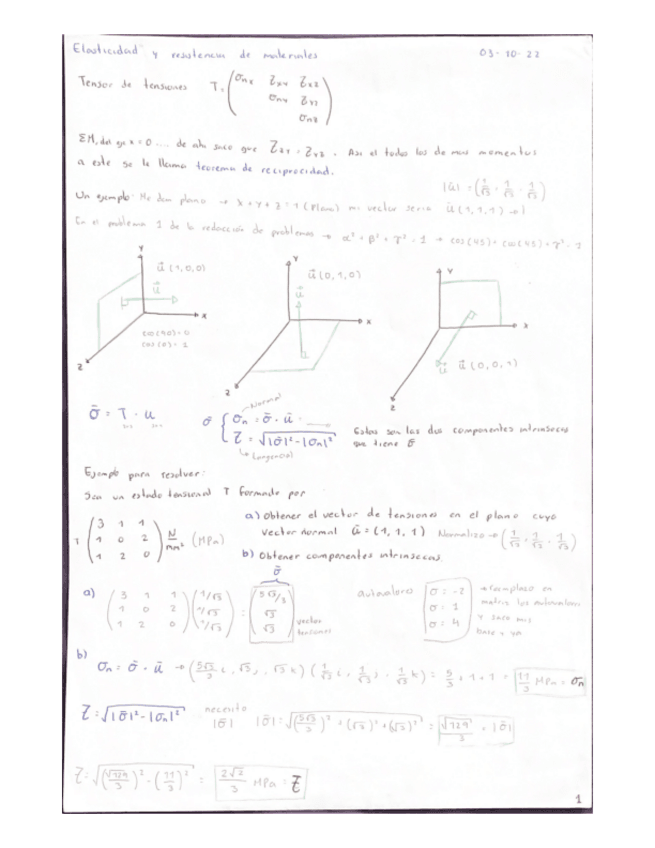 Elasticidad y resistencia de materiales 03-10-22
Tensor de tensiones T: ( σnx τxy τxz
σny τyz
σnz )
ΣM, del eje x = 0 .... de ahi saco que τzy = τyz . Asi el todos los de mas momentos
a este se le llama teorema de reciprocidad.
|ū| = (1/√3 , 1/√3 , 1/√3)
Un ejemplo: Me dan plano → x + y + z = 1 (Plano) mi vector seria ū (1, 1, 1) →
En el problema 1 de la redacción de problemas → α² + β² + γ² = 1 → cos(45) + cos(45) + γ² = 1
Y ū (1, 0, 0) ū X Z
cos(90) = 0
cos(0) = 1
Y ū (0, 1, 0) ū X Z
Y X Z ū ū (0, 0, 1)
σ̄ = T · u
Normal
σ̄ { σn = σ̄ · ū
τ = √|σ̄|² - |σn|²
Tangencial
Estas son las dos componentes intrinsecas
que tiene σ̄
Ejemplo para resolver:
Sea un estado tensional T formado por
T ( 3 1 1
1 0 2
1 2 0 ) N/mm² (MPa)
a) Obtener el vector de tensiones en el plano cuyo
vector normal ū = (1, 1, 1) Normalizo → (1/√3 , 1/√3 , 1/√3)
b) Obtener componentes intrinsecas.
σ̄
a) ( 3 1 1
1 0 2
1 2 0 ) ( 1/√3
1/√3
1/√3 ) = ( 5√3/3
√3
√3 ) vector
tensiones
autovalores σ = -2
σ = 1
σ = 4
→ reemplazo en
matriz los autovalores
y saco mis
base y ya
b)
σn = σ̄ · ū → (5√3/3 i, √3 j, √3 k) (1/√3 i, 1/√3 j, 1/√3 k) = 5/3 + 1 + 1 = 11/3 MPa = σn
τ = √|σ̄|² - |σn|² necesito |σ̄| |σ̄| = √(5√3/3)² + (√3)² + (√3)² = √129/3 = |σ̄|
τ = √(√129/3)² - (11/3)² = 2√2/3 MPa = τ
1